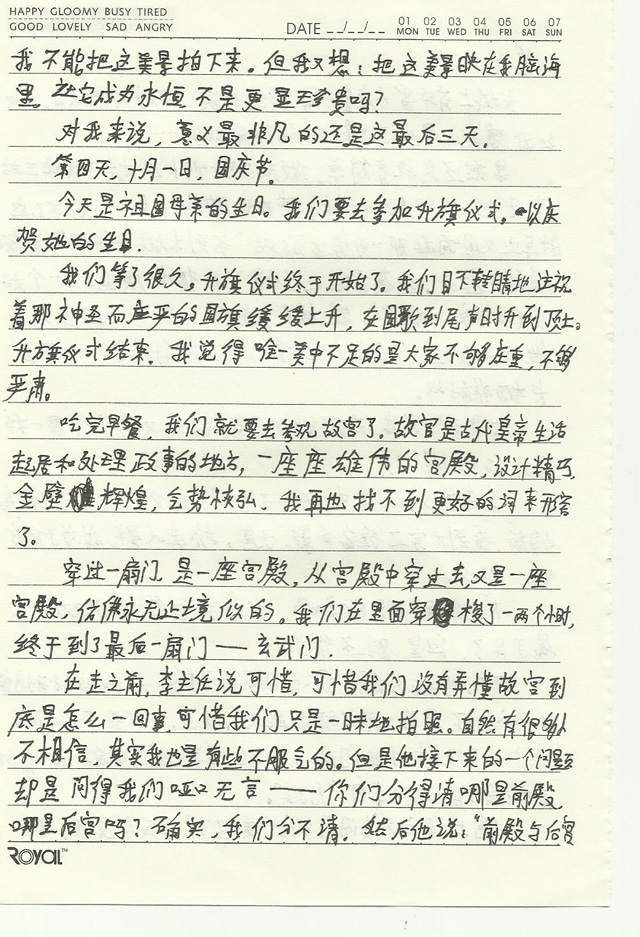 HAPPY GLOOMY BUSY TIRED
GOOD LOVELY SAD ANGRY
DATE _/_/_
01 02 03 04 05 06 07
MON TUE WED THU FRI SAT SUN
我不能把这美景拍下来。但我又想：把这美景映在我脑海
里。让它成为永恒不是更显珍贵吗？
对我来说，意义最非凡的还是这最后三天。
第四天，十月一日，国庆节。
今天是祖国母亲的生日。我们要去参加升旗仪式。以庆
贺她的生日.
我们等了很久。升旗仪式终于开始了。我们目不转睛地注视
着那神圣而庄严的国旗缓缓上升，在国歌到尾声时升到顶上。
升旗仪式结束。我觉得唯一美中不足的是大家不够庄重，不够
严肃。
吃完早餐，我们就要去参观故宫了。故宫是古代皇帝生活
起居和处理政事的地方，一座座雄伟的宫殿，设计精巧，
金壁辉煌，气势恢弘。我再也找不到更好的词来形容
了。
穿过一扇门，是一座宫殿，从宫殿中穿过去又是一座
宫殿，仿佛永无止境似的。我们在里面穿梭了一两个小时，
终于到了最后一扇门——玄武门.
在走之前，李主任说可惜，可惜我们没有弄懂故宫到
底是怎么一回事，可惜我们只是一昧地拍照。自然有很多人
不相信，其实我也是有些不服气的。但是他接下来的一个问题
却是问得我们哑口无言——你们分得清哪是前殿，
哪是后宫吗？确实，我们分不清。然后他说：“前殿与后宫
ROYAL™